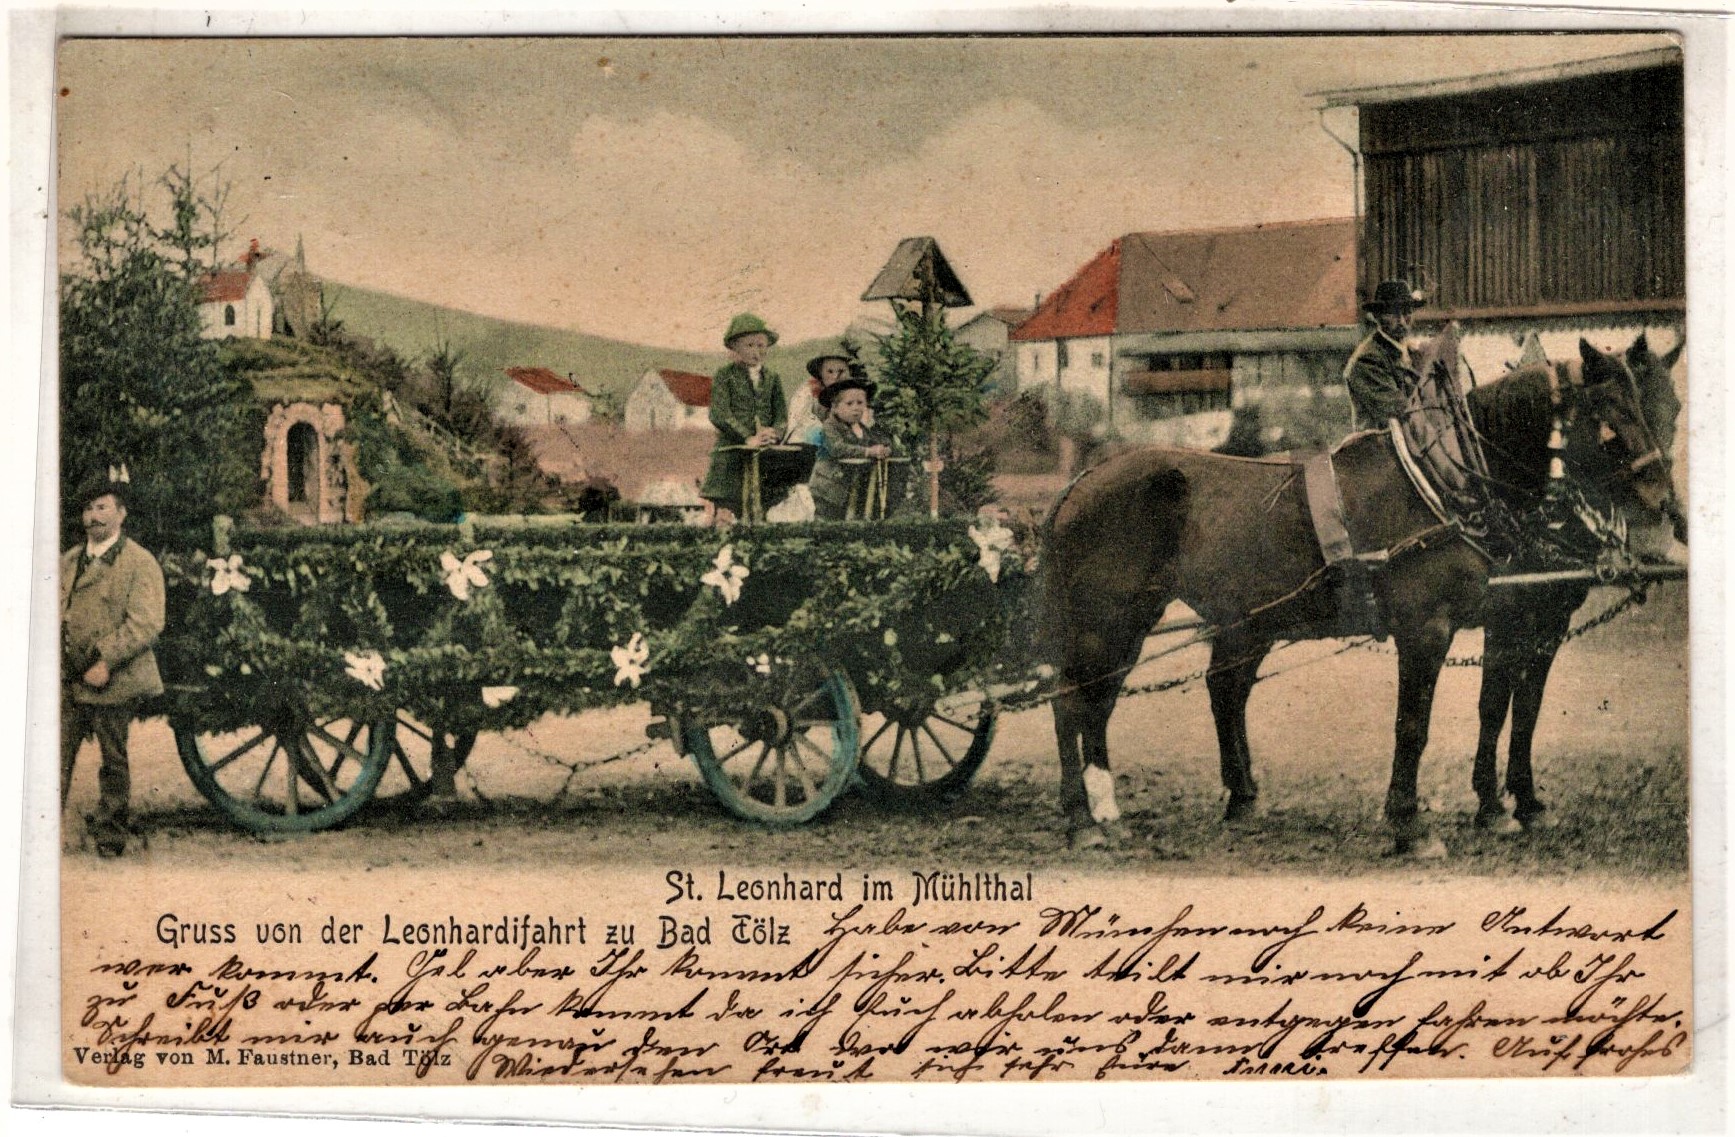 St. Leonhard im Mühlthal
Gruss von der Leonhardifahrt zu Bad Tölz Habe von München noch keine Antwort
wer kommt. Gel aber Ihr kommt sicher. Bitte teilt mir noch mit ob Ihr
zu Fuß oder per Bahn kommt da ich Euch abholen oder entgegen fahren möchte.
Schreibt mir auch genau den Ort wo wir uns dann treffen. Auf frohes
Verlag von M. Faustner, Bad Tölz
Wiedersehen freut sich sehr Eure